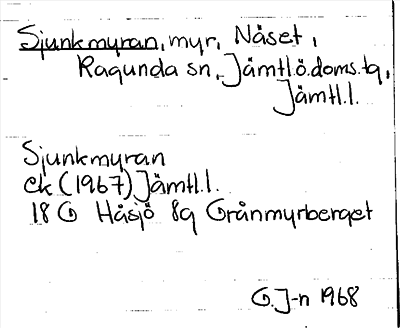 Sjunkmyran, myr, Näset,
Ragunda sn, Jämtl.ö.doms.tg,
Jämtl.l.
Sjunkmyran
ek (1967) Jämtl.l.
18 G Håsjö 8g Grånmyrberget
G. J-n 1968